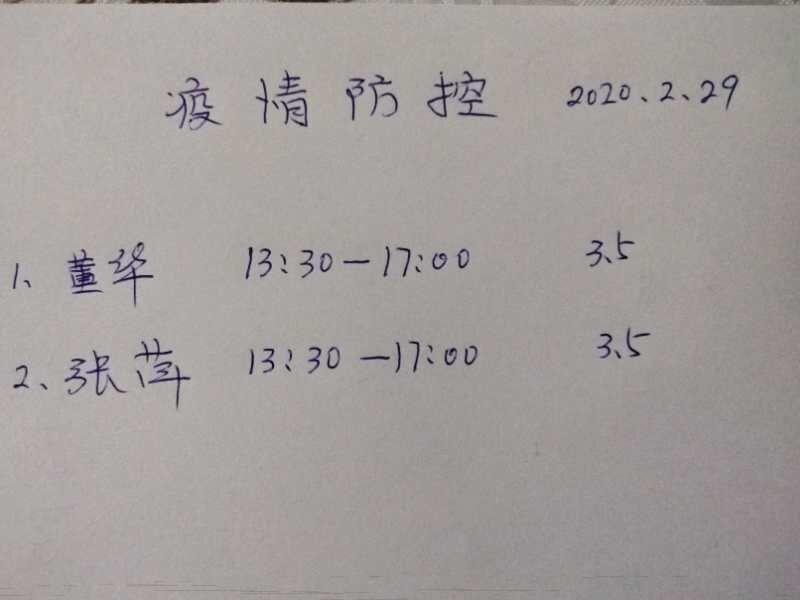 疫情防控 2020.2.29
1、董华 13:30—17:00 3.5
2、张萍 13:30—17:00 3.5